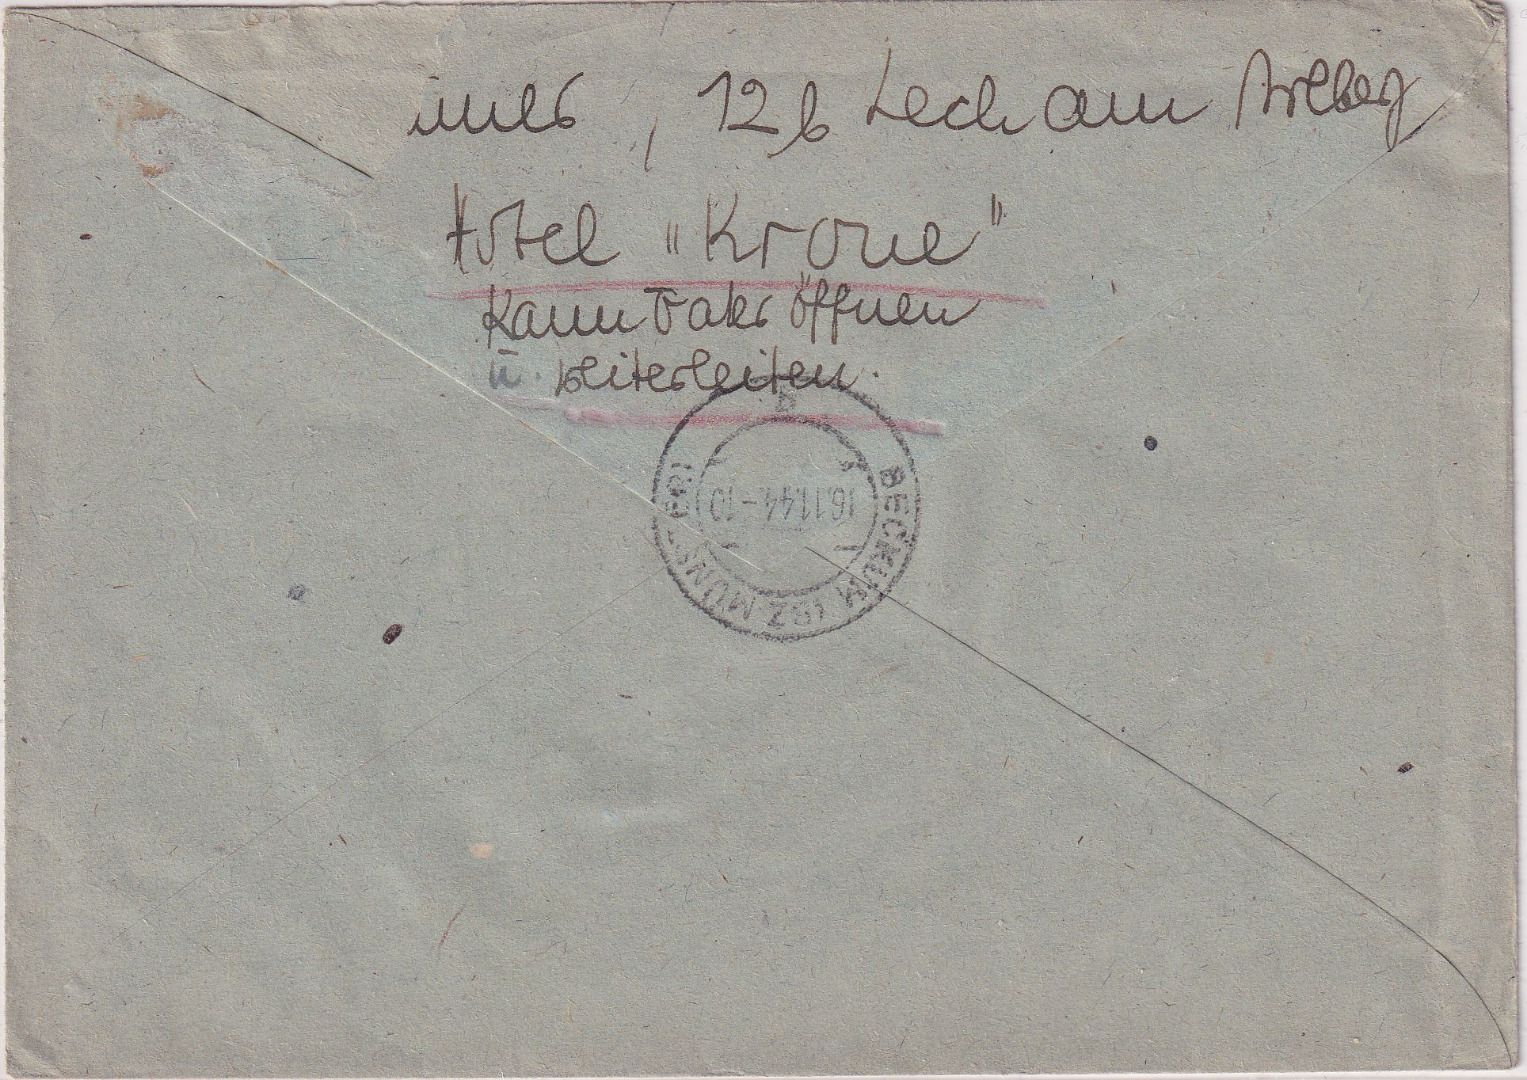 , 12b Lech am Arlberg
Hotel "Krone"
Kann Vater öffnen
u. weiterleiten.
b
16.11.44.-10
BECKUM (BZ MÜNST